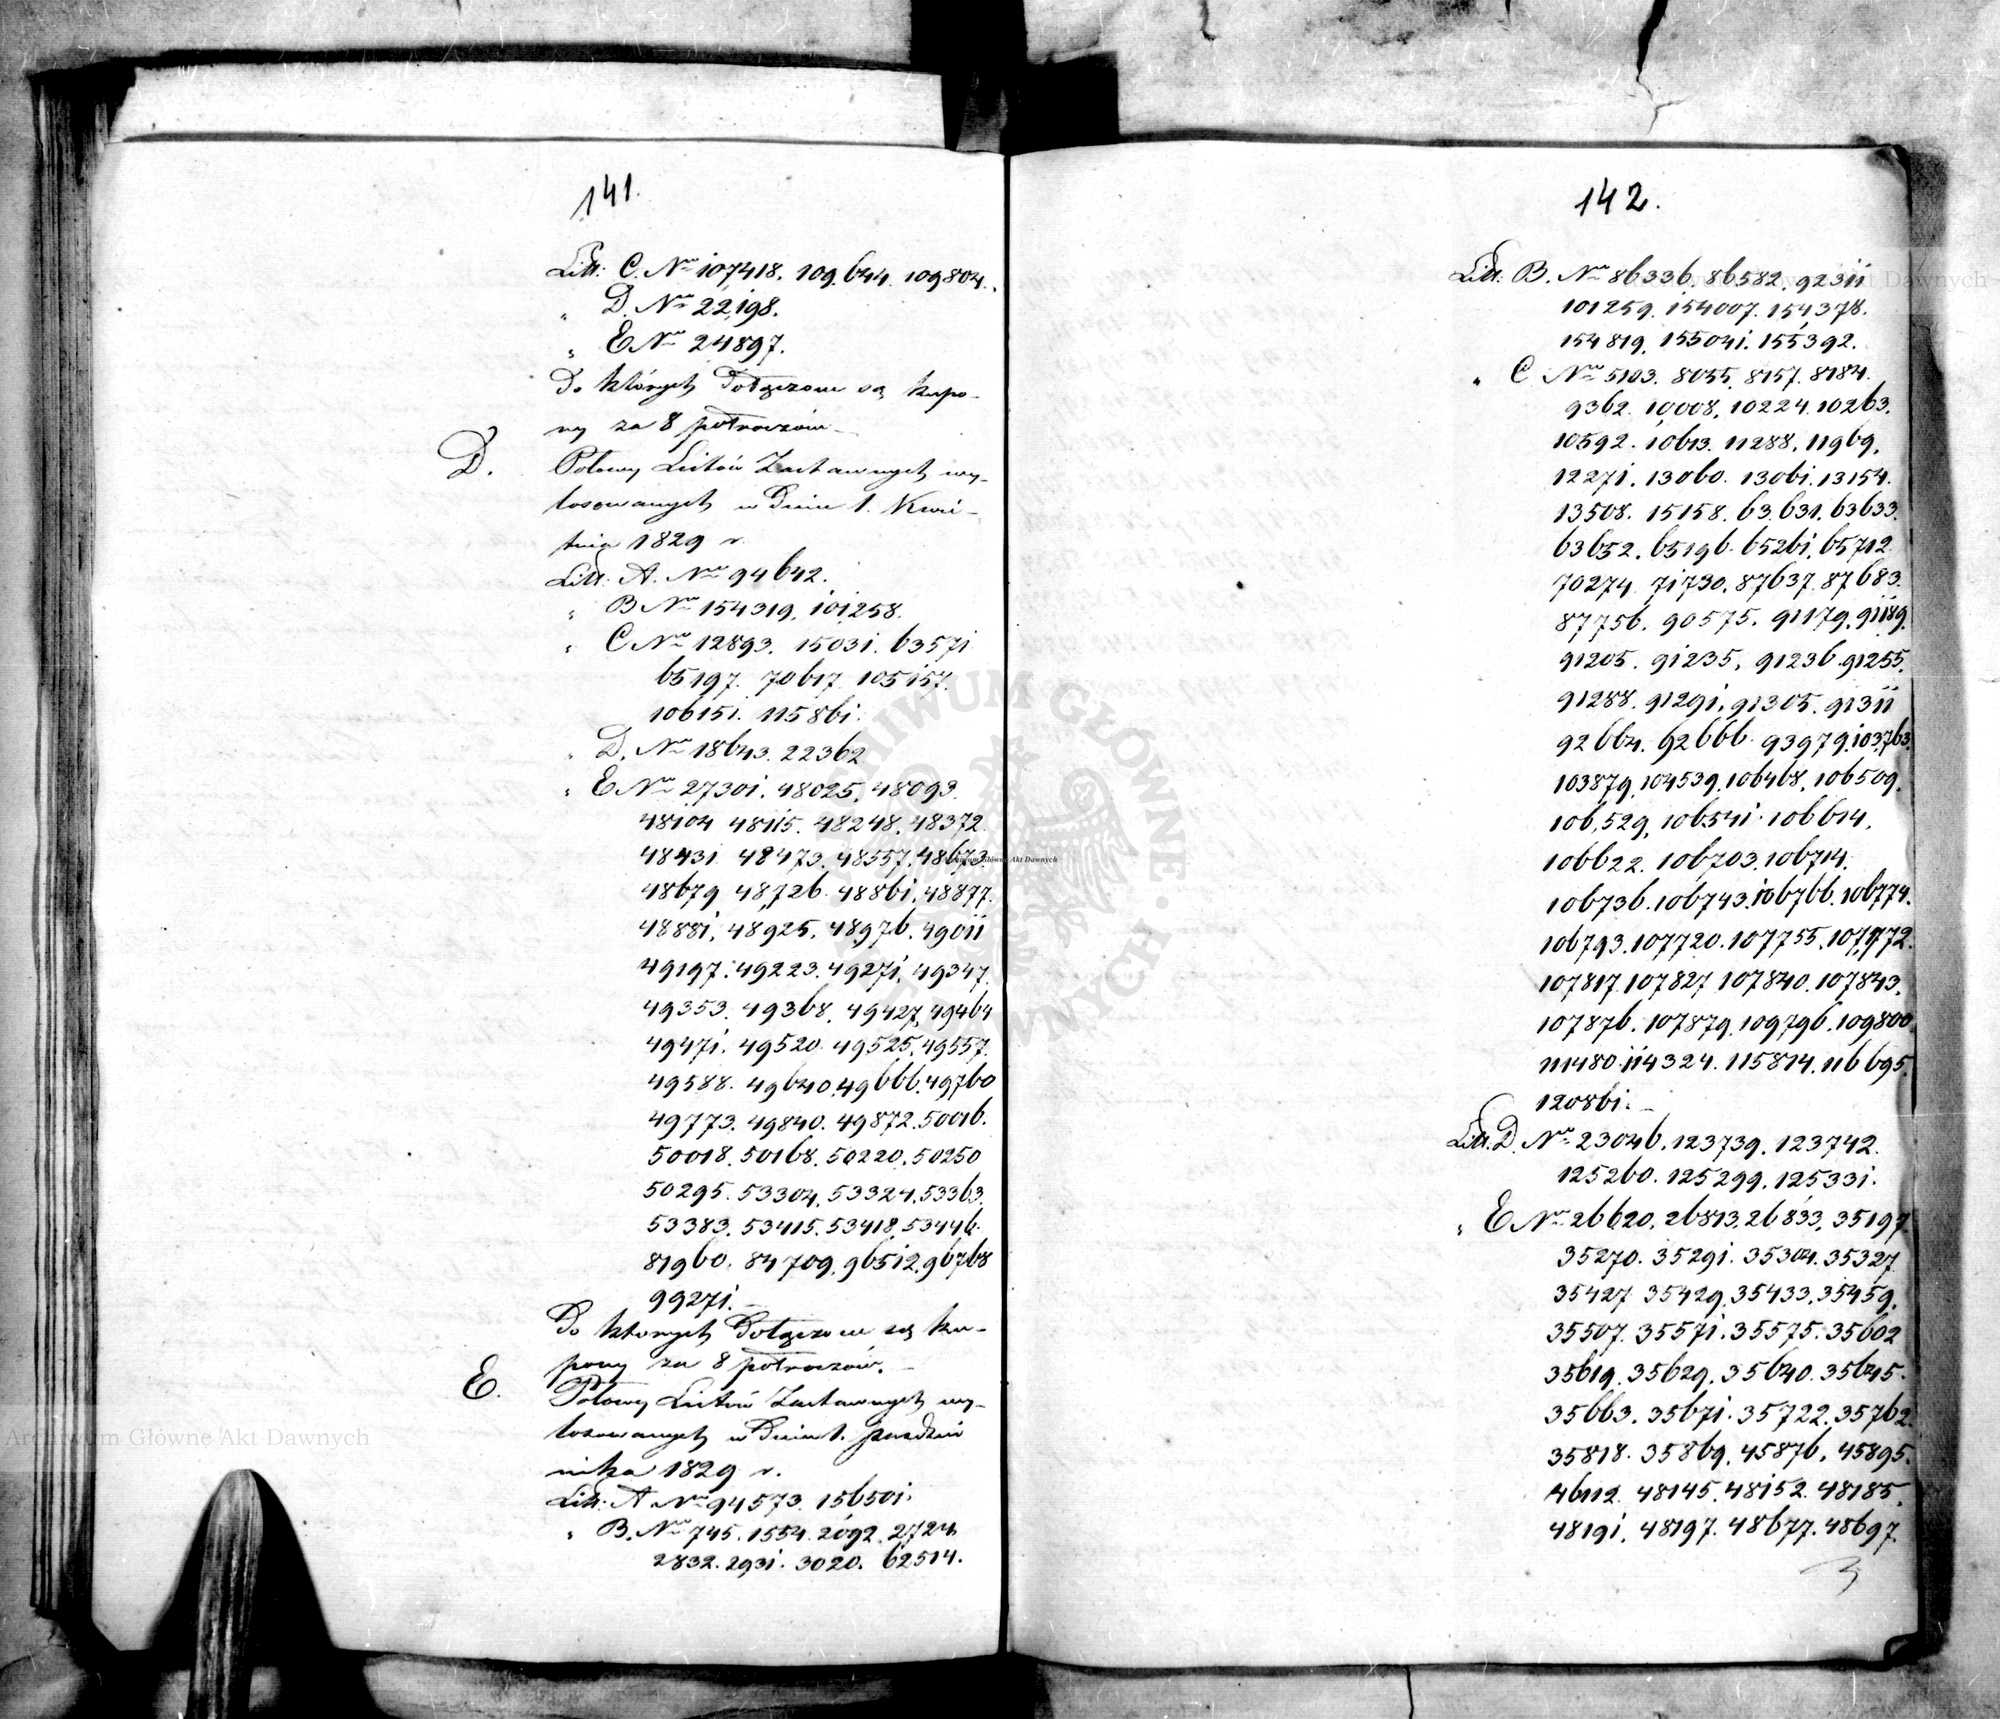 141.
Litt: C. Nro 107418. 109.644. 109804.
" D. Nro 22,198.
" E Nro 24897.
Do których dołączone są kupo-
ny za 8 półroczów –
D. Połowy Listów Zastawnych wy-
losowanych w Dniu 1. Kwie-
tnia 1829 r.
Litt: A. Nro 94642.
" B Nro 154319. 101258.
" C Nro 12893. 15031. 63571
65197. 70617. 105157.
106151. 115861.
" D. Nro 18643. 22362
" E Nro 27301. 48025. 48093.
48104 48115. 48248. 48372.
48431. 48473. 48557. 48673.
48679 48726. 48861. 48877.
48881. 48925. 48976. 49011
49197. 49223. 49271. 49347.
49353. 49368. 49427. 49464
49471. 49520. 49525. 49557.
49588. 49640. 49666. 49760
49773. 49840. 49872. 50016.
50018. 50168. 50220. 50250
50295. 53304. 53324. 53363.
53383. 53415. 53418. 53446.
81960. 84709. 96512. 96768
99271. –
Do których Dołączone są ku-
pony za 8 półroczów. –
E. Połowy Listów Zastawnych wy-
losowanych w Dniu 1. paździer
nika 1829 r.
Litt: A Nro 94573. 156501.
" B. Nro 745. 1554. 2692. 2724.
2832. 2931. 3020. 62514.
142.
Litt: B. Nro 86336. 86582. 92311
101259. 154007. 154378.
154819. 155041. 155392.
" C Nro 5103. 8035. 8157. 8184.
9362. 10008. 10224. 10263.
10592. 10613. 11288. 11969.
12271. 13060. 13061. 13154.
13508. 15158. 63.631. 63633.
63652. 65196. 65261. 65712.
70274. 71730. 87637. 87683.
87756. 90575. 91179. 91189.
91205. 91235. 91236. 91255.
91288. 91291. 91305. 91311
92664. 92666. 93979. 103763.
103879. 104539. 106468. 106509.
106,529. 106541. 106614.
106622. 106703. 106714.
106736. 106743. 106766. 106774.
106793. 107720. 107755. 107772.
107817. 107827. 107840. 107843.
107876. 107879. 109796. 109800
111480. 114324. 115814. 116695.
120861. –
Litt. D. Nro 23046. 123739. 123742.
125260. 125299. 125331.
" E Nro 26620. 26813. 26833. 35197.
35270. 35291. 35304. 35327.
35427 35429. 35433. 35459.
35507. 35571. 35575. 35602
35619. 35629. 35640. 35645.
35663. 35671. 35722. 35762.
35818. 35869. 45876. 45895.
46112. 48145. 48152. 48185.
48191. 48197. 48677. 48697.
Archiwum Główne Akt Dawnych